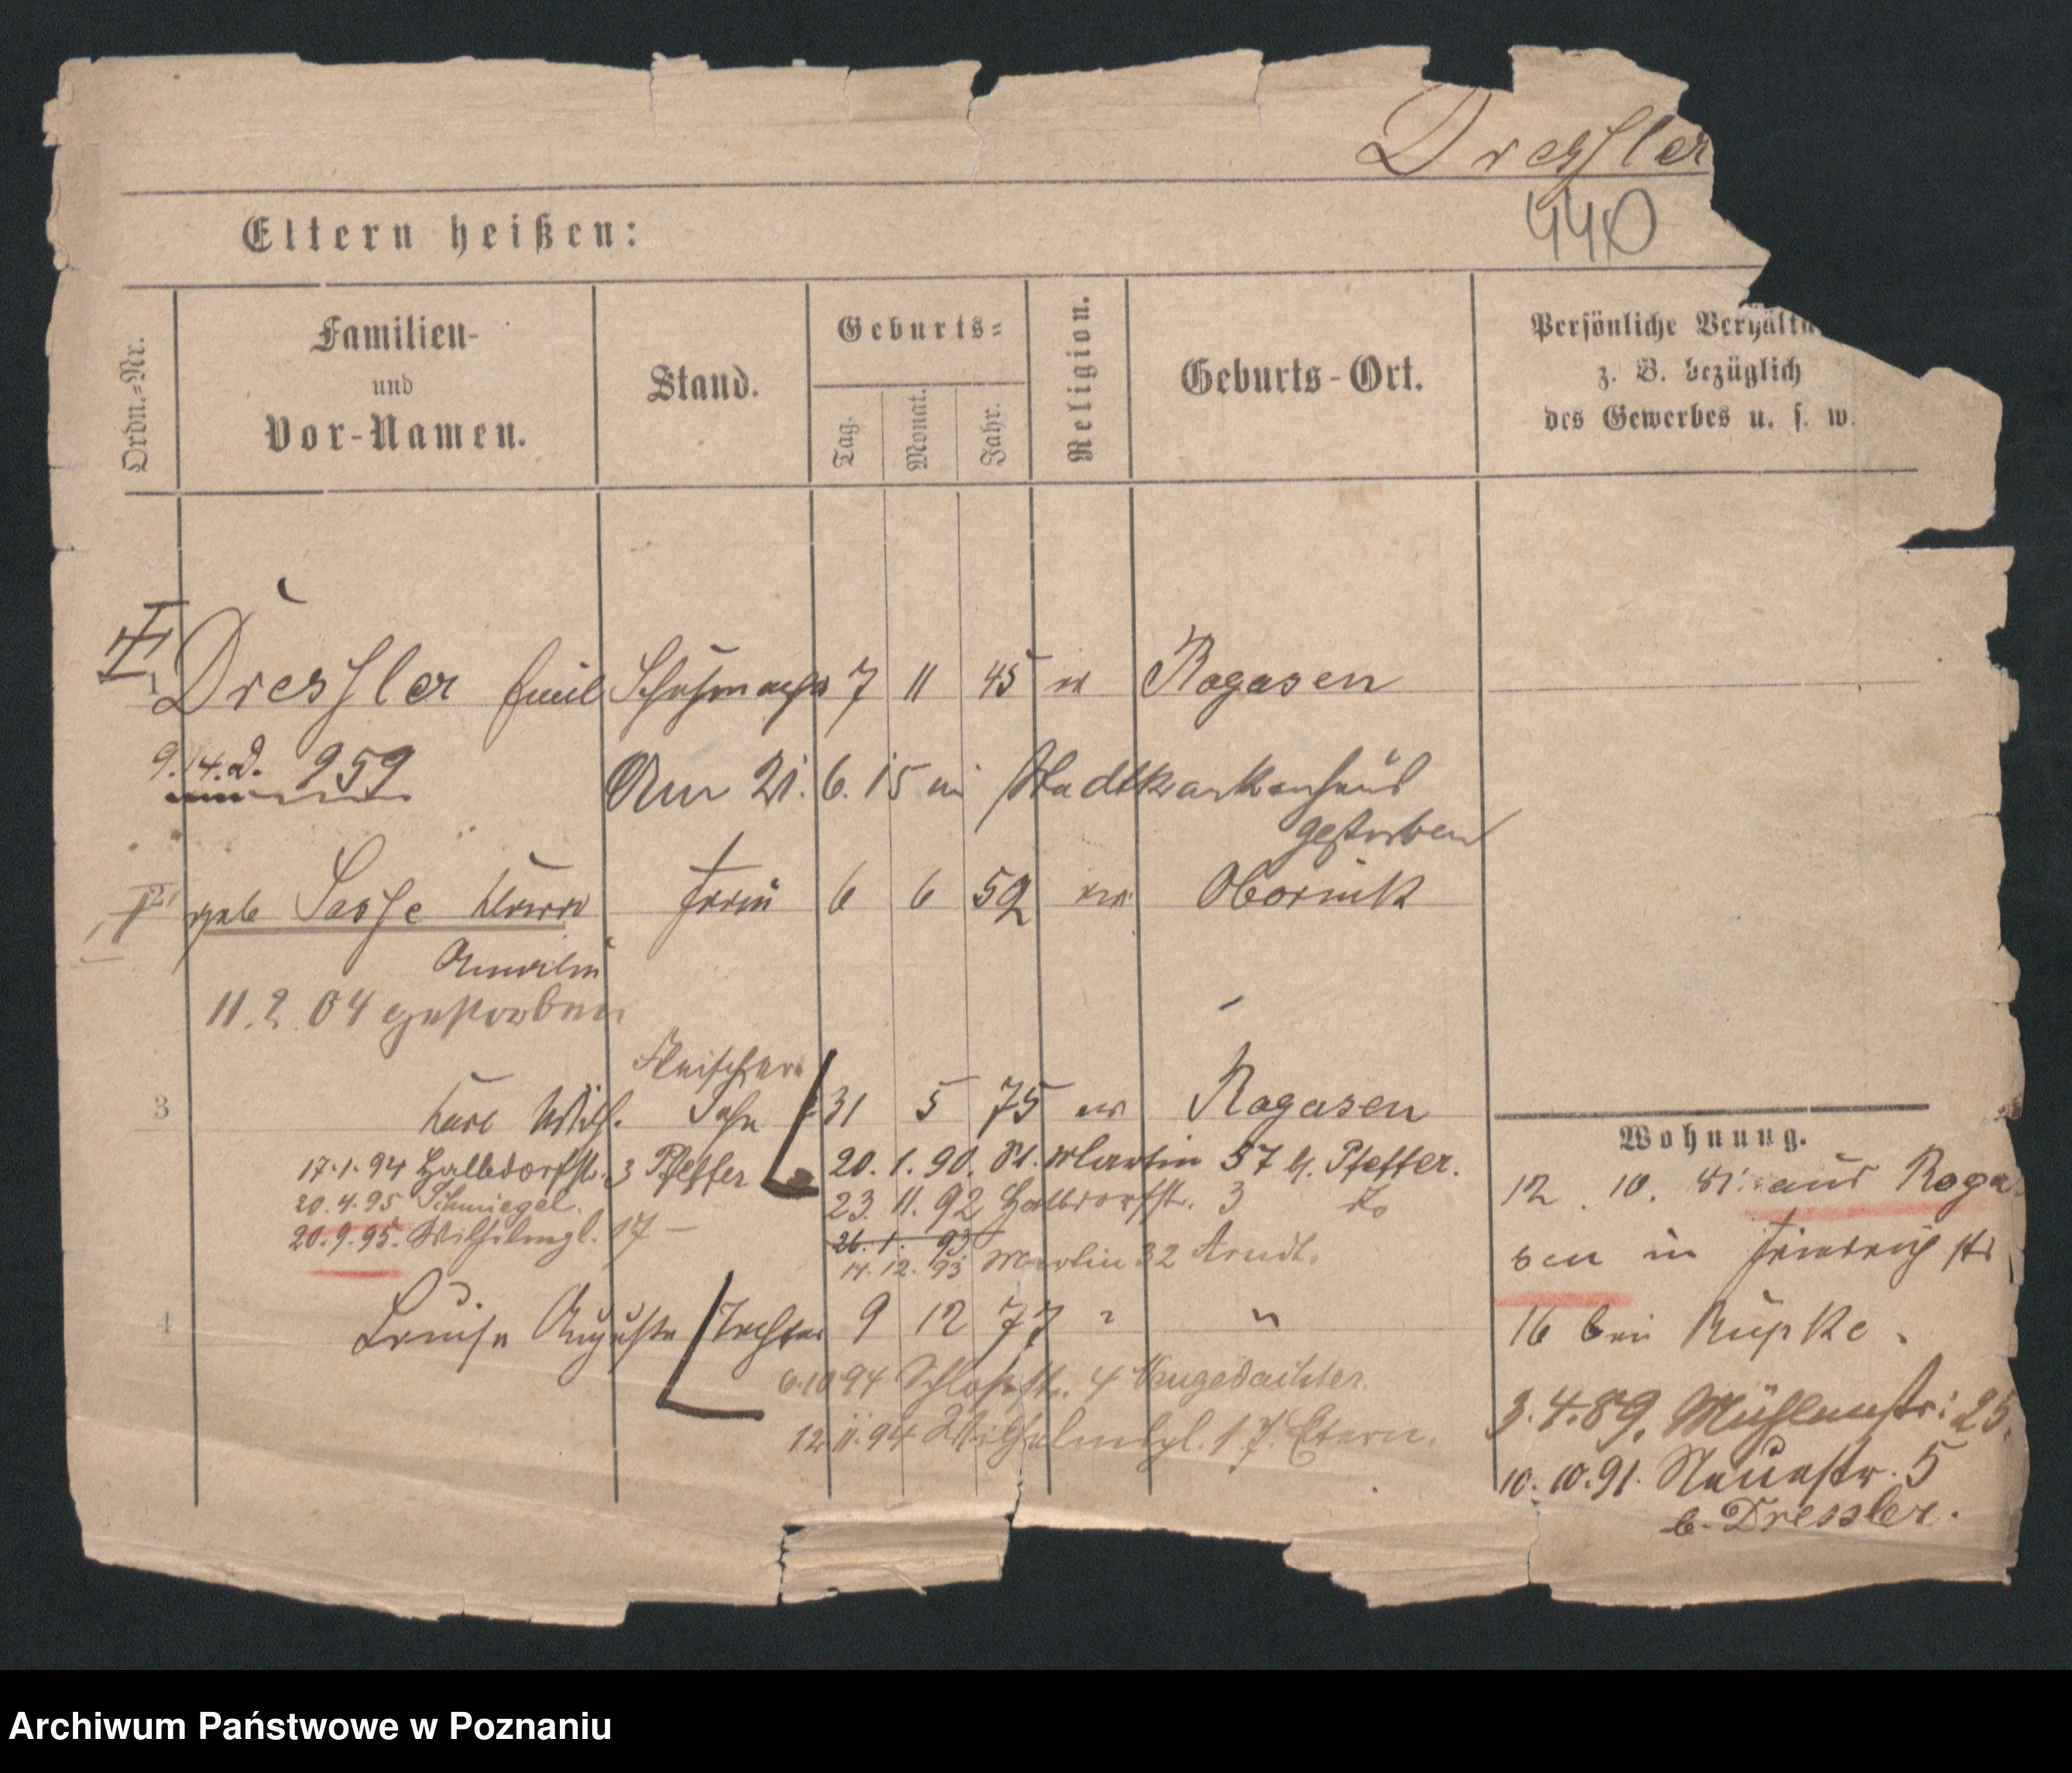 Dressler
440
Eltern heißen:
Ordn.=Nr.
Familien-
und
Vor-Namen.
Stand.
Geburts=
Tag.
Monat.
Jahr.
Religion.
Geburts-Ort.
Persönliche Verhältn
z. B. bezüglich
des Gewerbes u. s. w.
1 Dressler Emil Schuhmacher 7 11 45 ev Rogasen
959
Am 21. 6. 15 im Stadtkrankenhaus
gestorben
2 geb Sasse Frau 6 6 52 ev Obornik
11. 2. 04 gestorben
Fleischer
3 Karl Wilh. Sohn 31 5 75 ev Rogasen
17.1.94 Halbdorfstr. 3 Pfeffer
20. 1. 90. St. Martin 57 b. Pfeffer.
20.4.95 Schmiegel.
23. 11. 92 Halbdorfstr. 3 do
20.9.95. Wilhelmpl. 17 —
26. 1. 93
14. 12. 93 Martin 32 Arndt.
4 Louise Auguste Tochter 9 12 77 " "
6.10 94 Schlossstr. 4 Neugedachter.
12.11.94 Wilhelmpl. 17. Eltern.
Wohnung.
12. 10. 81 aus Roga
sen in Friedrichstr
16 bei Kupke.
3.4.89. Mühlenstr: 25.
10.10.91. Neuestr. 5
b. Dressler.
Archiwum Państwowe w Poznaniu